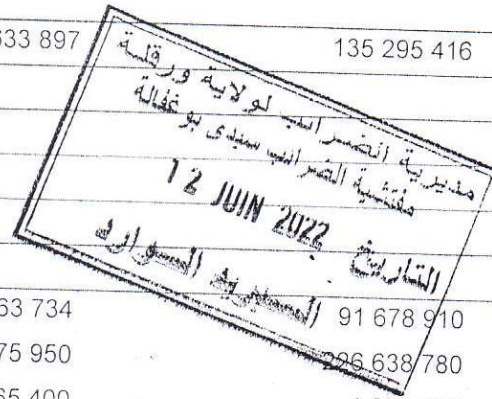 633 897 135 295 416
مديرية الضرائب لولاية ورقلة
مفتشية الضرائب سيدي بوغفالة
التاريخ 12 JUIN 2022
البريد الوارد
63 734 91 678 910
75 950 226 638 780
65 400